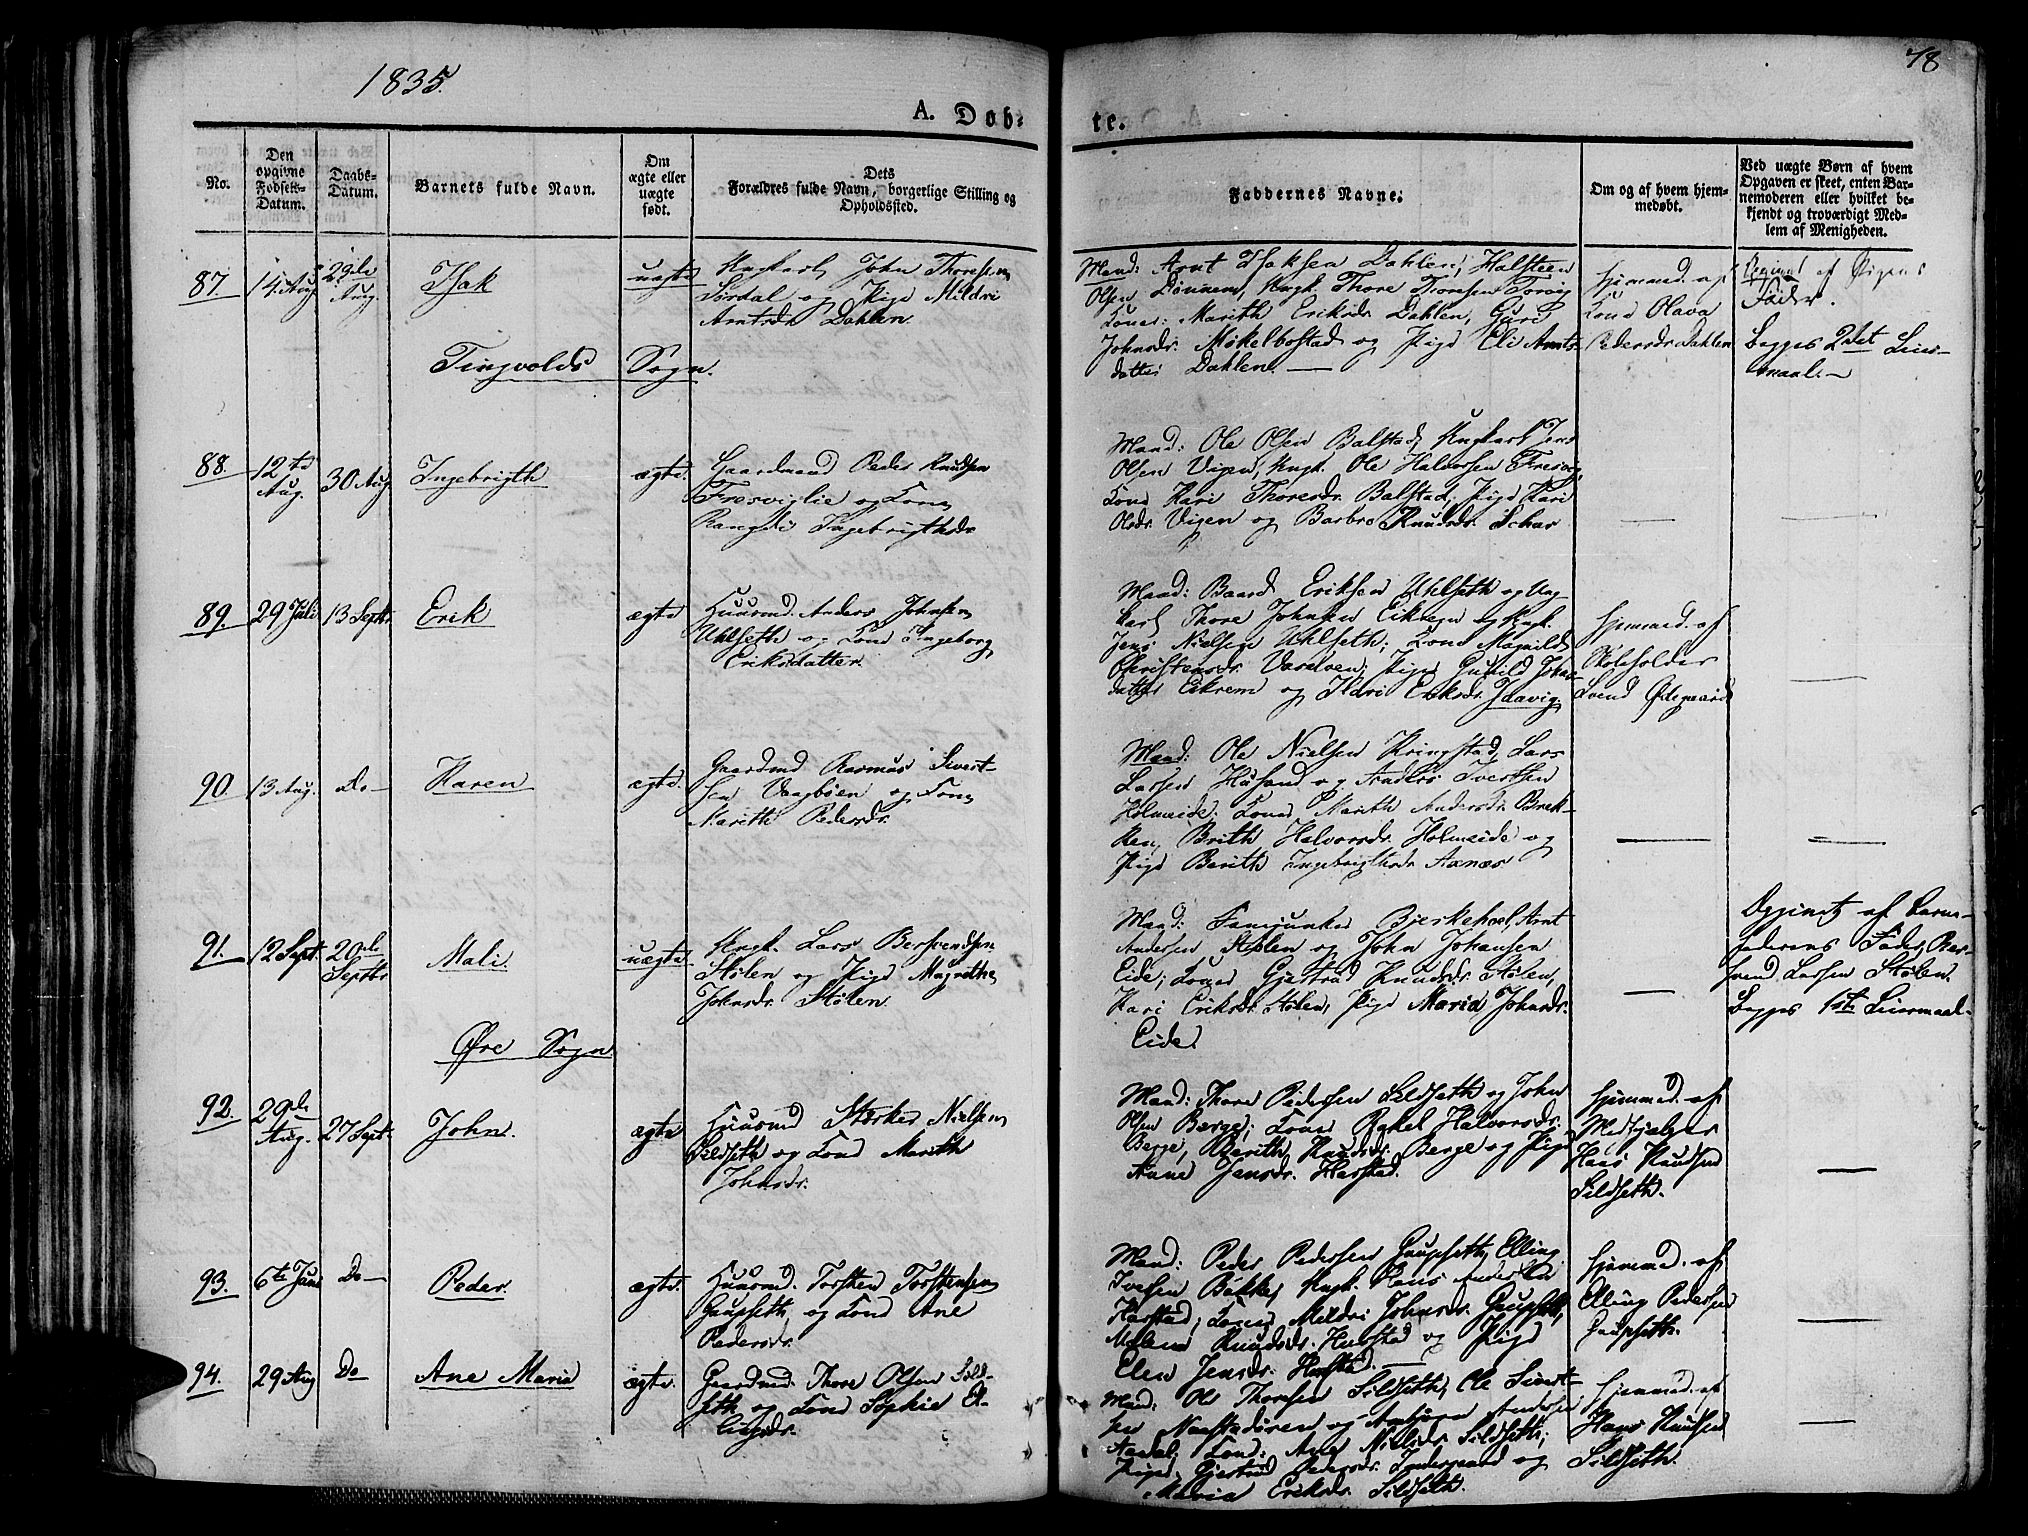 1835.
78
A. Døb-
te.
No.
Den opgivne Fødsels-Datum.
Daabs-Datum.
Barnets fulde Navn.
Om ægte eller uægte født.
Dets Forældres fulde Navn, borgerlige Stilling og Opholdssted.
Faddernes Navne.
Om og af hvem hjem-medøbt.
Ved uægte Børn af hvem Opgaven er skeet, enten Bar-nemoderen eller hvilket be-kjendt og troværdigt Med-lem af Menigheden.
87. 14 Aug 29de Aug. Isak uægte
Ungkarl John Thoresen
Sirdal og Pige Mildri
Arntsdr Dahlen.
Mænd: Arnt Isaksen Dahlen, Halsteen
Olsen Dønnem, Ungk. Thore Thoresen Torvig
Koner: Marith Eriksdr. Dahlen, Guri
Johnsdr. Møkelbostad og Pige Eli Arnts-
datter Dahlen. —
Hjemmed. af
Kone Olava
Pedersdr Dahlen
Opgivet af Pigens
Fader.
Begges 2det Leier-
maal. —
Tingvolds Sogn.
88. 12te Aug. 30 Aug Ingebrigth ægte.
Gaardmand Peder Knudsen
Fresviglie og Kone
Rangdi Ingebrigthsdr
Mænd: Ole Olsen Balstad, Ungkarl Jens
Olsen Vigen, Ungk. Ole Halvorsen Fresvig,
Kone Kari Thoresdr. Balstad, Pige Kari
Olsdr. Vigen og Barbro Knudsdr Schar
—
—
89. 29 Juli 13 Septbr Erik ægte
Huusmd. Anders Johnsen
Uhlseth og Kone Ingeborg
Eriksdatter.
Mænd: Baard Eriksen Uhlseth og Ung-
karl Thore Johnsen Eikrem og Ungk.
Jens Nielsen Uhlseth; Kone Magnild
Christensdr. Vaaelven; Pige Gunild Johns-
datter Eikrem og Ildri Eriksdr.
Hjemmed. af
Skoleholder
Svend Ødegaard
—
90. 13 Aug. Do — Karen ægte.
Gaardmd Rasmus Sivert-
sen Vaagbøen og Kone
Marith Pedersdr.
Mænd: Ole Nielsen Kringstad, Lars
Larsen Husand og Anders Iversen
Holmeide; Koner Marith Andersdr Bræk-
ken, Brith Halvorsdr. Holmeide og
Pige Berith Ingebrigtsdr Axnæs
—
—
91. 12 Sept. 20de Septbr Mali. uægte
Ungk. Lars Bersvendsen
Stølen og Pige Magrethe
Johnsdr Stølen.
Mænd: Fanejunker Bjerkehoel, Arnt
Andersen Stølen og John Johansen
Eide; Koner Gjertrud Knudsdr. Stølen,
Kari Eriksdr. Stølen; Pige Maria Johnsdr.
Eide.
—
Opgivet af Barne-
faderens Fader, Ber-
svend Larsen Stølen.
Begges 1ste Leiermaal.
Øre Sogn.
92. 29de Aug. 27 Sept. John. ægte
Huusmd Størker Nielsen
Sildseth og Kone Marith
Johnsdr.
Mænd: Thore Pedersen Sildseth og John
Olsen Berge; Koner Rakel Halvorsdr.
Berge, Berith Knudsdr. Berge og Pige
Anne Jensdr. Harstad.
Hjemmed. af
Medhjelper
Hans Knudsen
Sildseth.
—
93. 6te Juni Do — Peder. ægte.
Huusmd. Torsten Torstensen
Gaupseth og Kone Ane
Pedersdr.
Mænd: Peder Pedersen Gaupseth, Elling
Iversen Bække, Ungk. Hans Andersen
Harstad; Koner Mildri Johnsdr. Gaupseth,
Malene Knudsdr. Harstad og Pige
Elen Jensdr. Harstad. —
Hjemmed. af
Elling Pedersen
Gaupseth.
—
94. 29 Aug Do — Ane Maria ægte.
Gaardmd. Thore Olsen Sild-
seth og Kone Sophie El-
lingsdr.
Mænd: Ole Thoresen Sildseth, Ole Sivert-
sen Naastadøren og Andersen
Aandal, Kone: Ane Nielsdr Sildseth;
Pige Gjertrud Pedersdr. Indergaard og
Maria Eriksdr. Sildseth.
Hjemmed. af
Hans Knudsen
Sildseth.
—